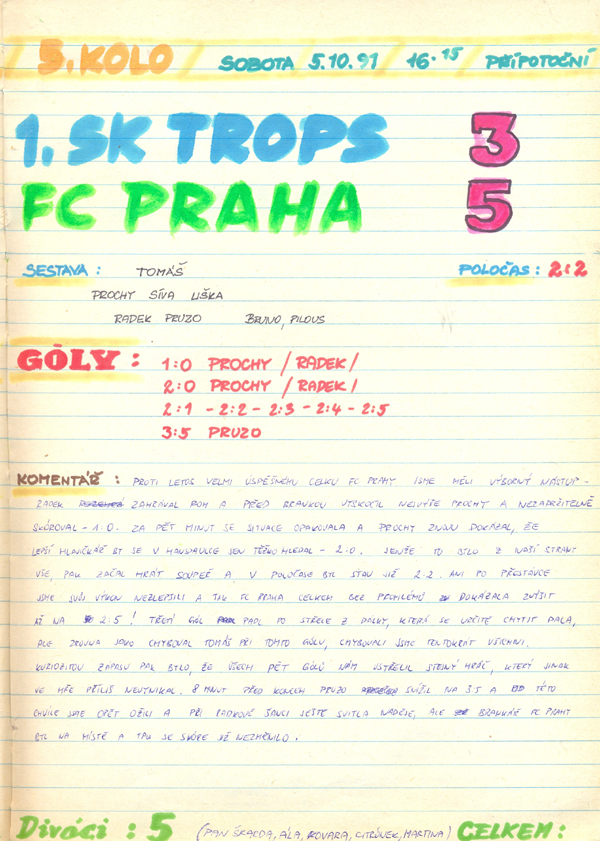 5. KOLO / SOBOTA 5.10.91 / 16.15 PŘÍPOTOČNÍ
1. SK TROPS 3
FC PRAHA 5
SESTAVA : TOMÁŠ POLOČAS : 2:2
PROCHY SÍVA LIŠKA
RADEK PRUZO BRUNO, PILOUS
GÓLY : 1:0 PROCHY / RADEK /
2:0 PROCHY / RADEK /
2:1 - 2:2 - 2:3 - 2:4 - 2:5
3:5 PRUZO
KOMENTÁŘ : PROTI LETOS VELMI ÚSPĚŠNÉMU CELKU FC PRAHY JSME MĚLI VÝBORNÝ NÁSTUP -
RADEK ZAHRÁVAL ROH A PŘED BRANKOU VYSKOČIL NEJVÝŠE PROCHY A NEZADRŽITELNĚ
SKÓROVAL - 1:0. ZA PĚT MINUT SE SITUACE OPAKOVALA A PROCHY ZNOVU DOKÁZAL, ŽE
LEPŠÍ HLAVIČKÁŘ BY SE V HANSPAULCE JEN TĚŽKO HLEDAL - 2:0. JENŽE TO BYLO Z NAŠÍ STRANY
VŠE, PAK ZAČAL HRÁT SOUPEŘ A V POLOČASE BYL STAV JIŽ 2:2. ANI PO PŘESTÁVCE
JSME SVŮJ VÝKON NEZLEPŠILI A TAK FC PRAHA CELKEM BEZ PROBLÉMŮ DOKÁZALA ZVÝŠIT
AŽ NA 2:5! TŘETÍ GÓL PADL PO STŘELE Z DÁLKY, KTERÁ SE URČITĚ CHYTIT DALA,
ALE ZROVNA JAKO CHYBOVAL TOMÁŠ PŘI TOMTO GÓLU, CHYBOVALI JSME TENTOKRÁT VŠICHNI.
KURIOZITOU ZÁPASU PAK BYLO, ŽE VŠECH PĚT GÓLŮ NÁM VSTŘELIL STEJNÝ HRÁČ, KTERÝ JINAK
VE HŘE PŘÍLIŠ NEVYNIKAL. 8 MINUT PŘED KONCEM PRUZO SNÍŽIL NA 3:5 A OD TÉTO
CHVÍLE JSME OPĚT OŽILI A PŘI RADKOVĚ ŠANCI JEŠTĚ SVITLA NADĚJE, ALE BRANKÁŘ FC PRAHY
BYL NA MÍSTĚ A TAK SE SKÓRE JIŽ NEZMĚNILO.
Diváci : 5 (PAN ŠKACDA, ÁLA, KOVARA, CITRŮNEK, MARTINA) CELKEM :